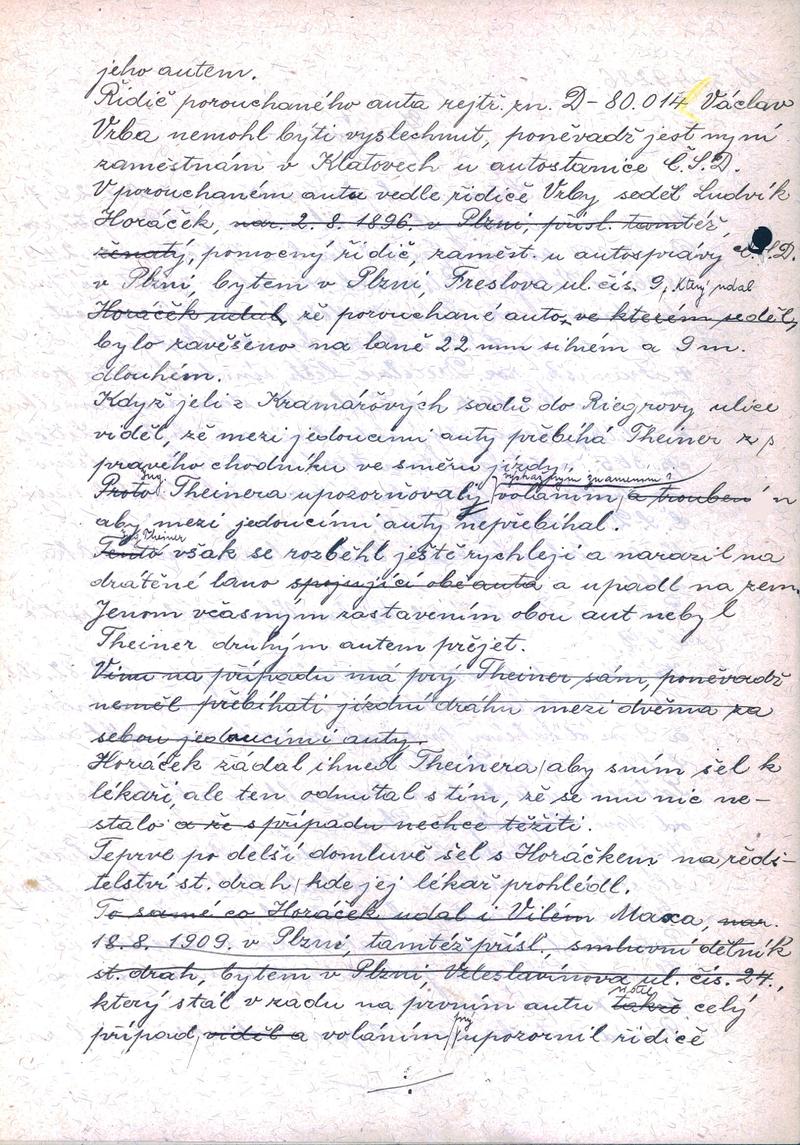 jeho autem.
Řidič porouchaného auta rejtř. zn. D-80.014 Václav
Vrba nemohl býti vyslechnut, poněvadž jest nyní
zaměstnám v Klatovech u autostanice Č.S.D.
V porouchaném autu vedle řidiče Vrby seděl Ludvík
Horáček, nar. 2. 8. 1896 v Plzni, přísl. tamtéž,
ženatý, pomocný řidič, zaměst. u autosprávy Č.S.D.
v Plzni, bytem v Plzni, Freslova ul. čís. 9, který udal
Horáček udal, že porouchané auto, ve kterém seděl,
bylo zavěšeno na laně 22 mm silném a 9 m.
dlouhém.
Když jeli z Kramářových sadů do Riegrovy ulice
viděl, že mezi jedoucími auty přebíhá Theiner z p
pravého chodníku ve směru jízdy.
výstražným znamením
Proto Theinera upozorňovaly voláním a troubení
aby mezi jedoucími auty nepřebíhal.
Theiner
Tento však se rozběhl ještě rychleji a narazil na
drátěné lano spojující obě auta a upadl na zem.
Jenom včasným zastavením obou aut nebyl
Theiner druhým autem přejet.
Vinu na případu má prý Theiner sám, poněvadž
neměl přebíhati jízdní dráhu mezi dvěma za
sebou jedoucími auty.
Horáček žádal ihned Theinera, aby sním šel k
lékaři, ale ten odmítal s tím, že se mu nic ne-
stalo a že s případu nechce těžiti.
Teprve po delší domluvě šel s Horáčkem na ředi-
telství st. drah, kde jej lékař prohlédl.
To samé co Horáček udal i Vilém Maxa, nar.
18. 8. 1909 v Plzni, tamtéž přísl., smluvní dělník
st. drah, bytem v Plzni, Veleslavínova ul. čís. 24.,
který stál v zadu na prvním autu také celý
případ, viděl a voláním prý upozornil řidiče